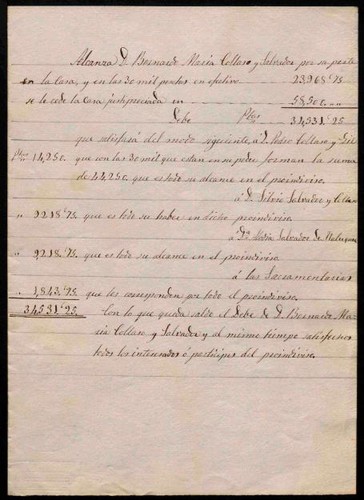 Alcanza D. Bernardo Maria Collaso y Salvador por su parte
en la Casa, y en las 30 mil pesetas en efectivo 23,968'75
se le cede la Casa justipreciada en 58,500 " "
Debe Ptas 34,531'25
que satisfará del modo siguiente, á D. Pedro Collaso y Gil
Ptas 14,250. que con las 30 mil que estan en su poder forman la suma
de 44,250. que es todo su alcance en el proindiviso.
á D. Silvio Salvador y Collaso
" 9218'75. que es todo su haber en dicho proindiviso.
á Dª Maria Salvador de
" 9218'75. que es todo su alcance en el proindiviso.
á las Sacramentarias
" 1,843'75. que les corresponden por todo el proindiviso.
34,531'25. Con lo que queda saldo el Debe de D. Bernardo Ma-
ria Collaso y Salvador y al mismo tiempo satisfechos
todos los interesados ó partícipes del proindiviso.